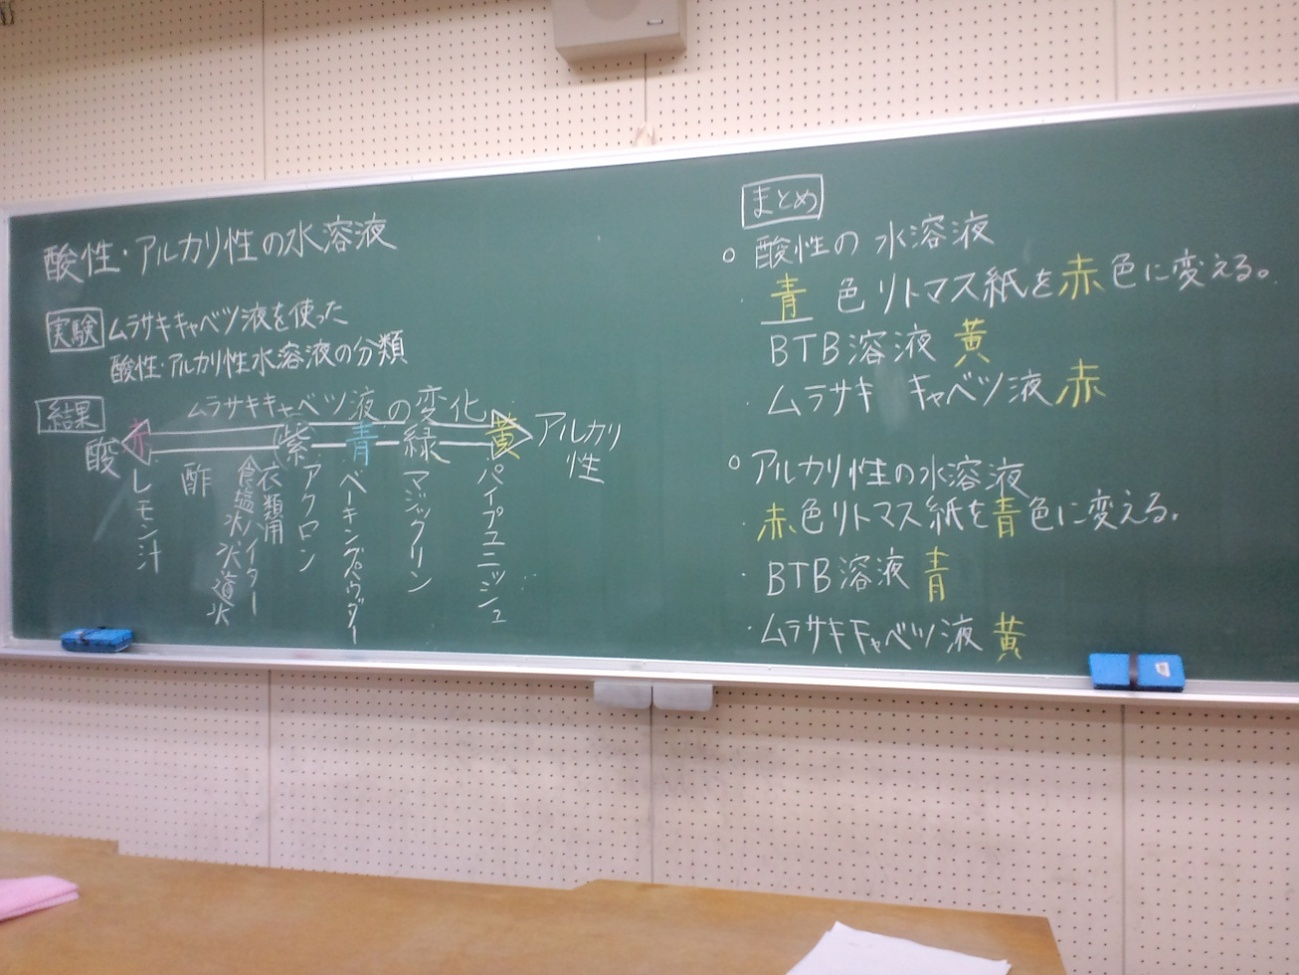 酸性・アルカリ性の水溶液
実験 ムラサキキャベツ液を使った
酸性・アルカリ性水溶液の分類
結果 ムラサキキャベツ液の変化
酸 赤 紫 青 緑 黄 アルカリ性
レモン汁
酢
食塩水
水道水
衣類用ハイター
アクロン
ベーキングパウダー
マジックリン
パイプユニッシュ
まとめ
○ 酸性の水溶液
・青色リトマス紙を赤色に変える。
BTB溶液 黄
・ムラサキキャベツ液 赤
○ アルカリ性の水溶液
・赤色リトマス紙を青色に変える。
・BTB溶液 青
・ムラサキキャベツ液 黄